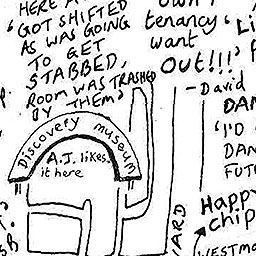 HERE A
'GOT SHIFTED
AS WAS GOING
TO GET
STABBED,
ROOM WAS TRASHED
BY THEM'
own
tenancy
want
out!!!'
-David
'Li
DAN
'I'D
DAN
FUTU
Discovery museum
A.J. likes
it here
Happy
chip
WESTMO
ARD